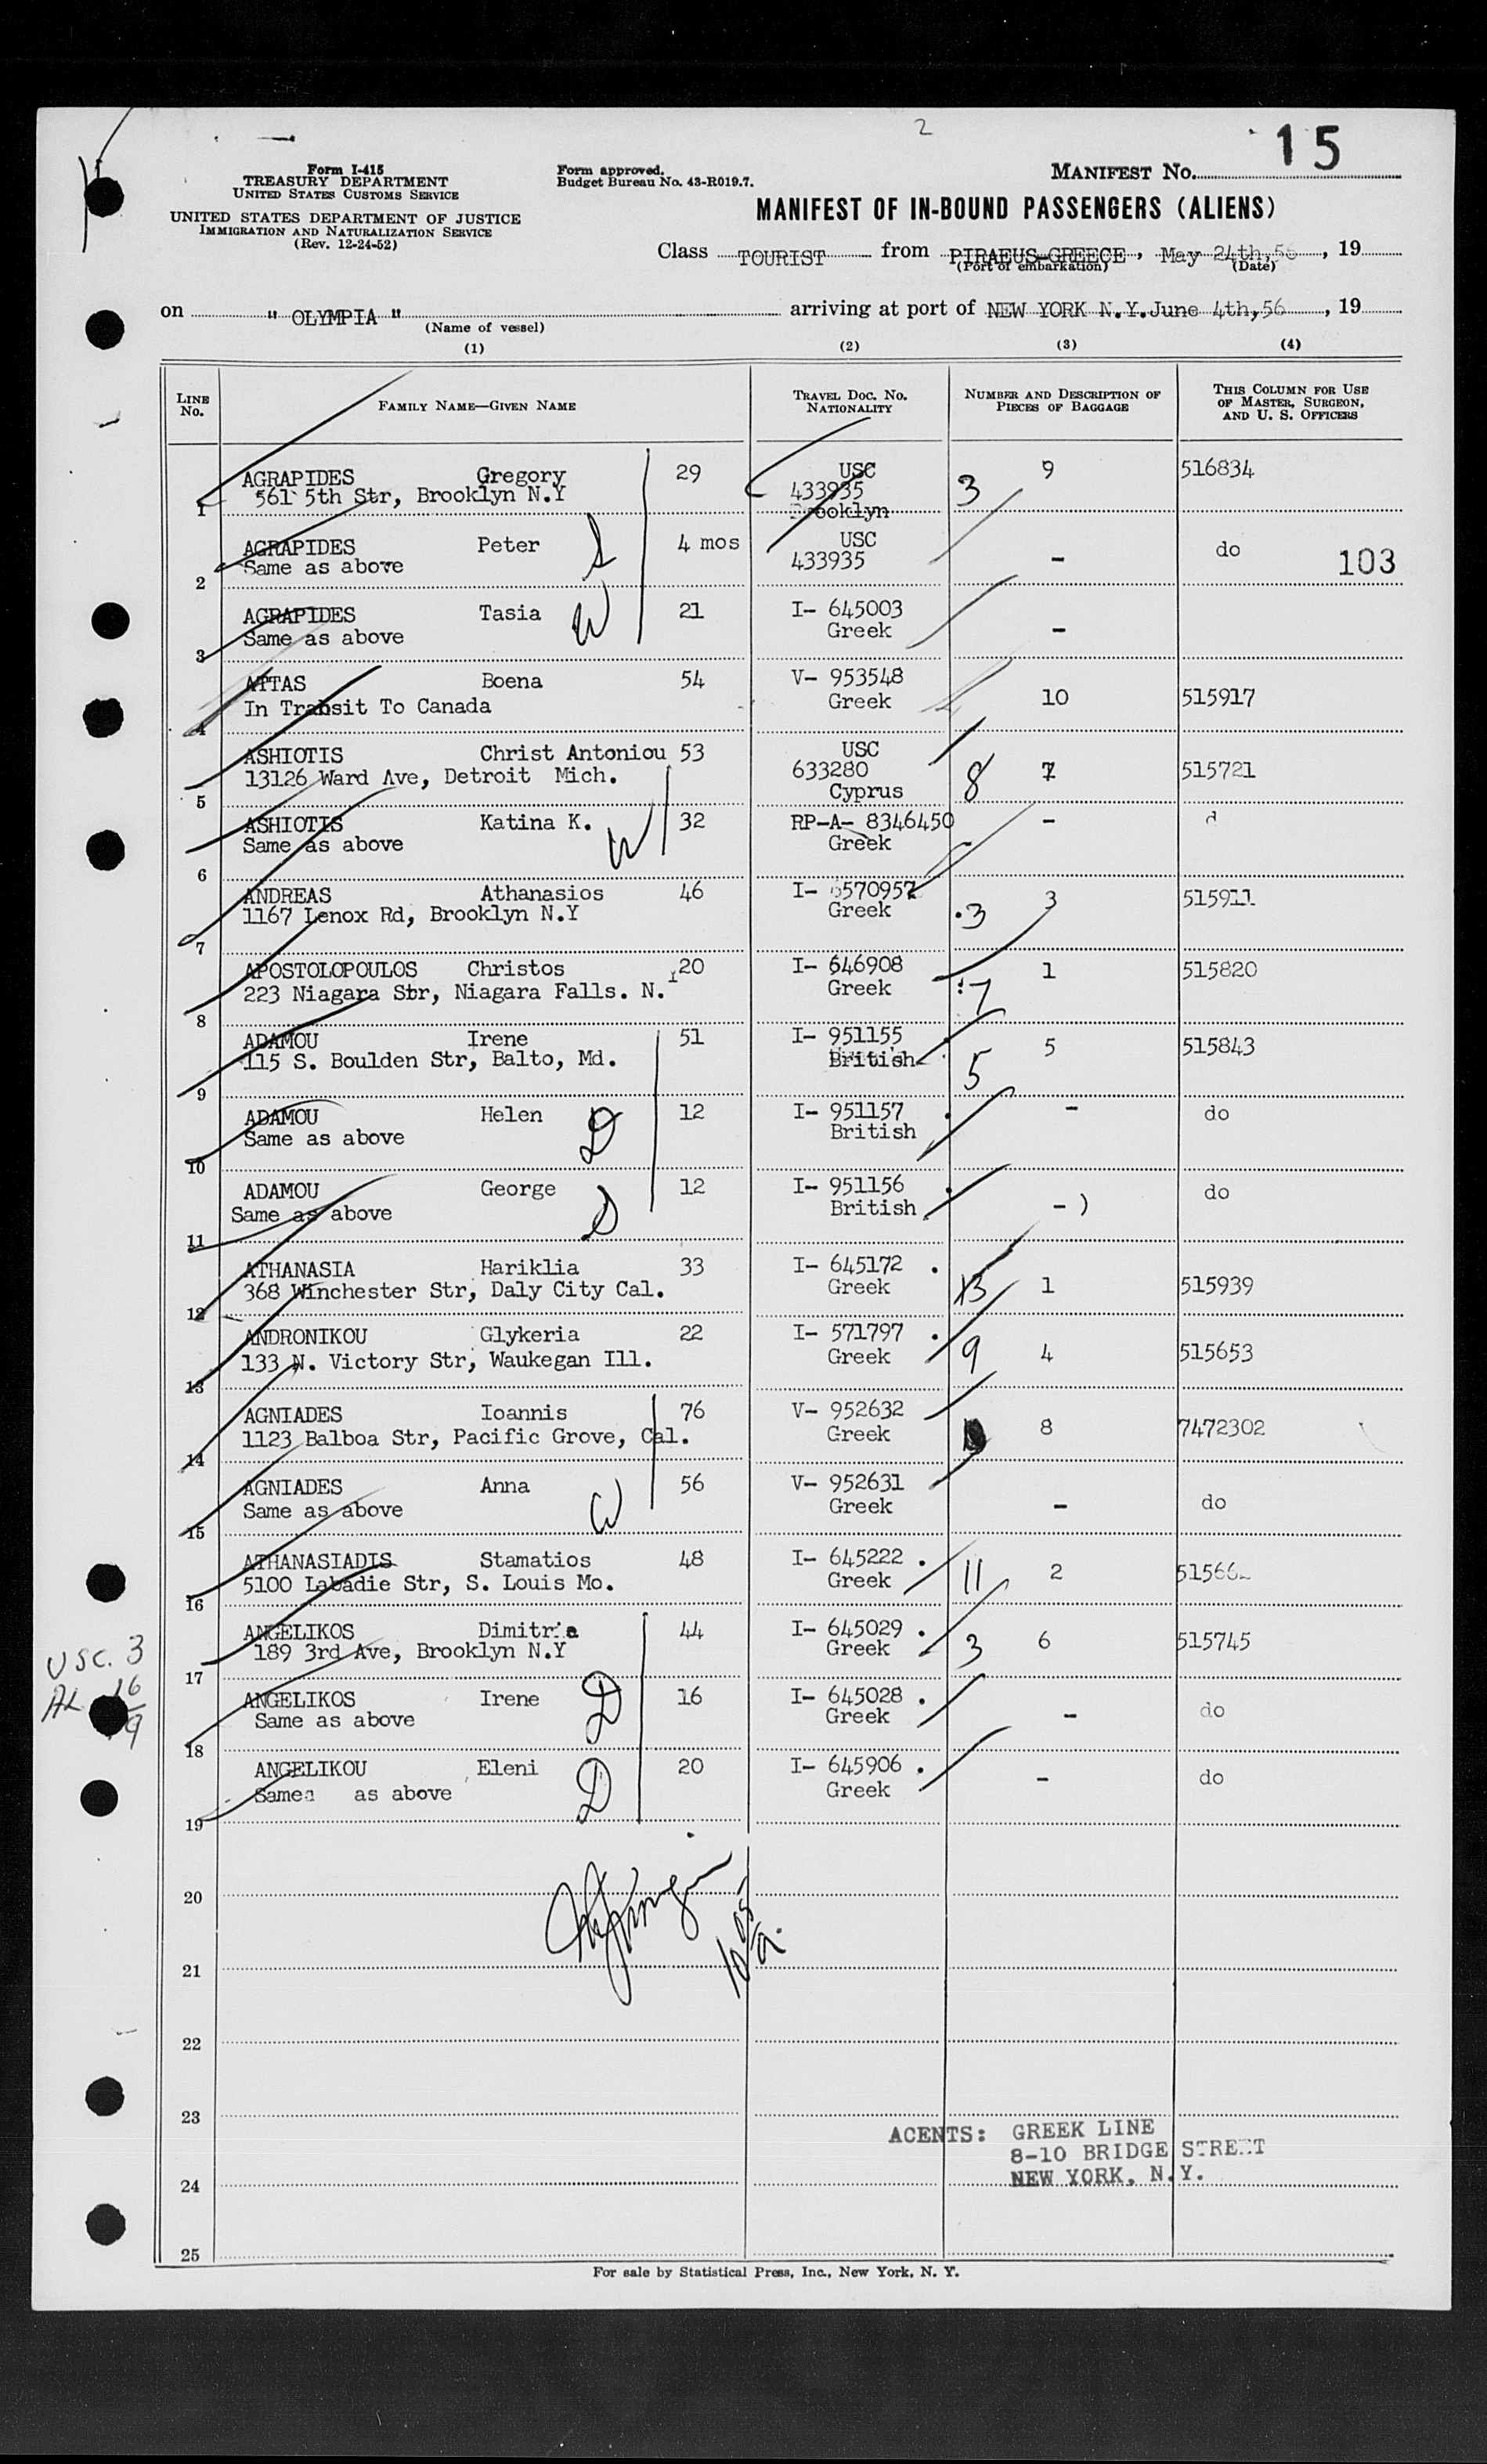 2
15
Form I-415
TREASURY DEPARTMENT
UNITED STATES CUSTOMS SERVICE
UNITED STATES DEPARTMENT OF JUSTICE
IMMIGRATION AND NATURALIZATION SERVICE
(Rev. 12-24-52)
Form approved.
Budget Bureau No. 43-R019.7.
MANIFEST No.
MANIFEST OF IN-BOUND PASSENGERS (ALIENS)
Class TOURIST from PIRAEUS-GREECE, May 24th, 56, 19
(Port of embarkation) (Date)
on " OLYMPIA " arriving at port of NEW YORK N.Y. June 4th, 56, 19
(Name of vessel)
(1) (2) (3) (4)
LINE No. FAMILY NAME—GIVEN NAME TRAVEL DOC. NO. NATIONALITY NUMBER AND DESCRIPTION OF PIECES OF BAGGAGE THIS COLUMN FOR USE OF MASTER, SURGEON, AND U. S. OFFICERS
AGRAPIDES Gregory 29 USC 9 516834
561 5th Str, Brooklyn N.Y 433935 3
1 Brooklyn
AGRAPIDES Peter 4 mos USC - do
Same as above S 433935 103
2
AGRAPIDES Tasia 21 I- 645003 -
Same as above W Greek
3
ATTAS Boena 54 V- 953548 10 515917
In Transit To Canada Greek
4
ASHIOTIS Christ Antoniou 53 USC 7 515721
13126 Ward Ave, Detroit Mich. 633280 8
5 Cyprus
ASHIOTIS Katina K. 32 RP-A- 8346450 -
Same as above W Greek
6
ANDREAS Athanasios 46 I- 6570957 3 515911
1167 Lenox Rd, Brooklyn N.Y Greek 3
7
APOSTOLOPOULOS Christos 20 I- 646908 1 515820
223 Niagara Str, Niagara Falls. N.Y Greek 7
8
ADAMOU Irene 51 I- 951155 5 515843
115 S. Boulden Str, Balto, Md. British 5
9
ADAMOU Helen 12 I- 951157 - do
Same as above D British
10
ADAMOU George 12 I- 951156 - ) do
Same as above S British
11
ATHANASIA Hariklia 33 I- 645172 1 515939
368 Winchester Str, Daly City Cal. Greek 13
12
ANDRONIKOU Glykeria 22 I- 571797 4 515653
133 N. Victory Str, Waukegan Ill. Greek 9
13
AGNIADES Ioannis 76 V- 952632 8 7472302
1123 Balboa Str, Pacific Grove, Cal. Greek
14
AGNIADES Anna 56 V- 952631 - do
Same as above W Greek
15
ATHANASIADIS Stamatios 48 I- 645222 2
5100 Labadie Str, S. Louis Mo. Greek 11
16
ANGELIKOS Dimitria 44 I- 645029 6 515745
189 3rd Ave, Brooklyn N.Y Greek 3
17
ANGELIKOS Irene 16 I- 645028 - do
Same as above D Greek
18
ANGELIKOU Eleni 20 I- 645906 - do
Same as above D Greek
19
USC. 3
AL 16
19
20
21
22
23
24
25
ACENTS: GREEK LINE
8-10 BRIDGE STREET
NEW YORK, N.Y.
For sale by Statistical Press, Inc., New York, N. Y.